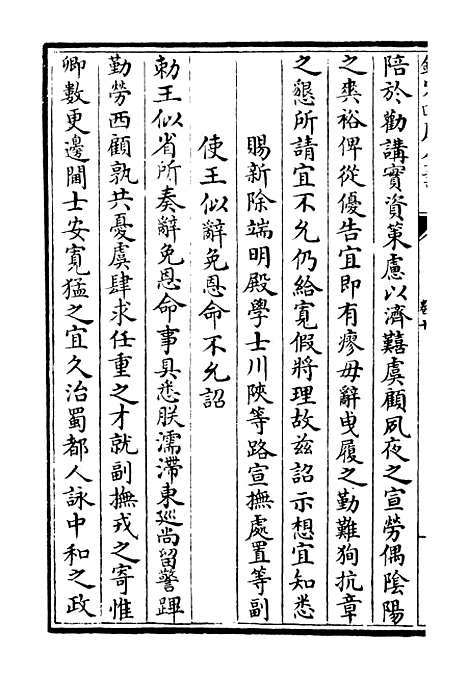 陪於勸講實資策慮以濟囏虞顧夙夜之宣勞偶陰陽
之爽裕俾從優告宜即有瘳毋辭曵履之勤難狥抗章
之懇所請宜不允仍給寛假將理故兹詔示想宜知悉
賜新除端明殿學士川陜等路宣撫處置等副
使王似辭免恩命不允詔
勅王似省所奏辭免恩命事具悉朕濡滯東廵尚留警蹕
勤勞西顧孰共憂虞肆求任重之才就副撫戎之寄惟
卿數更邊閫士安寛猛之宜久治蜀都人詠中和之政